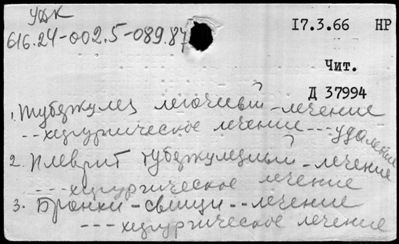 УДК
616.24-002.5-089.87
17.3.66 НР
Чит.
Д 37994
1. Туберкулез легочный - лечение
-- хирургическое лечение --- удаление
2. Плеврит туберкулезный - лечение
-- хирургическое лечение
3. Бронхи - свищи -- лечение
--- хирургическое лечение